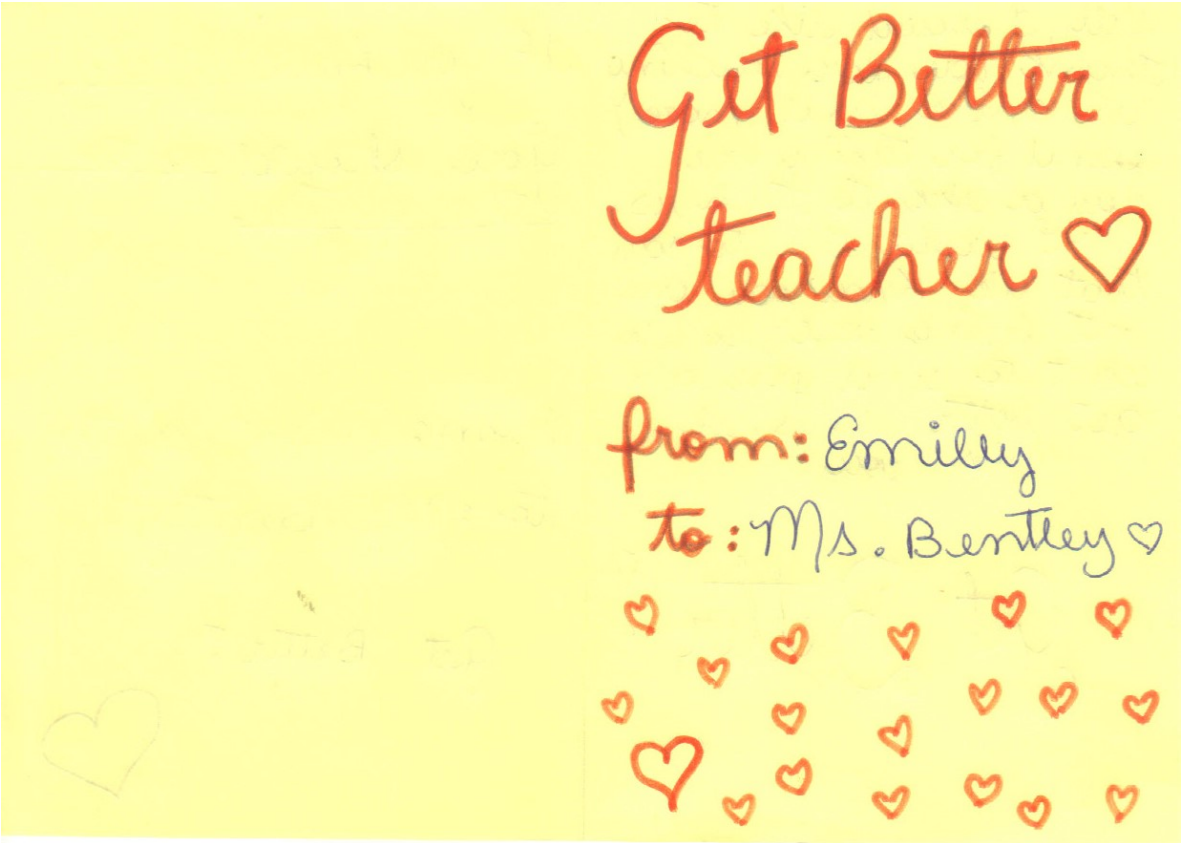 Get Better
teacher ♡
from: Emilly
to: Ms. Bentley ♡